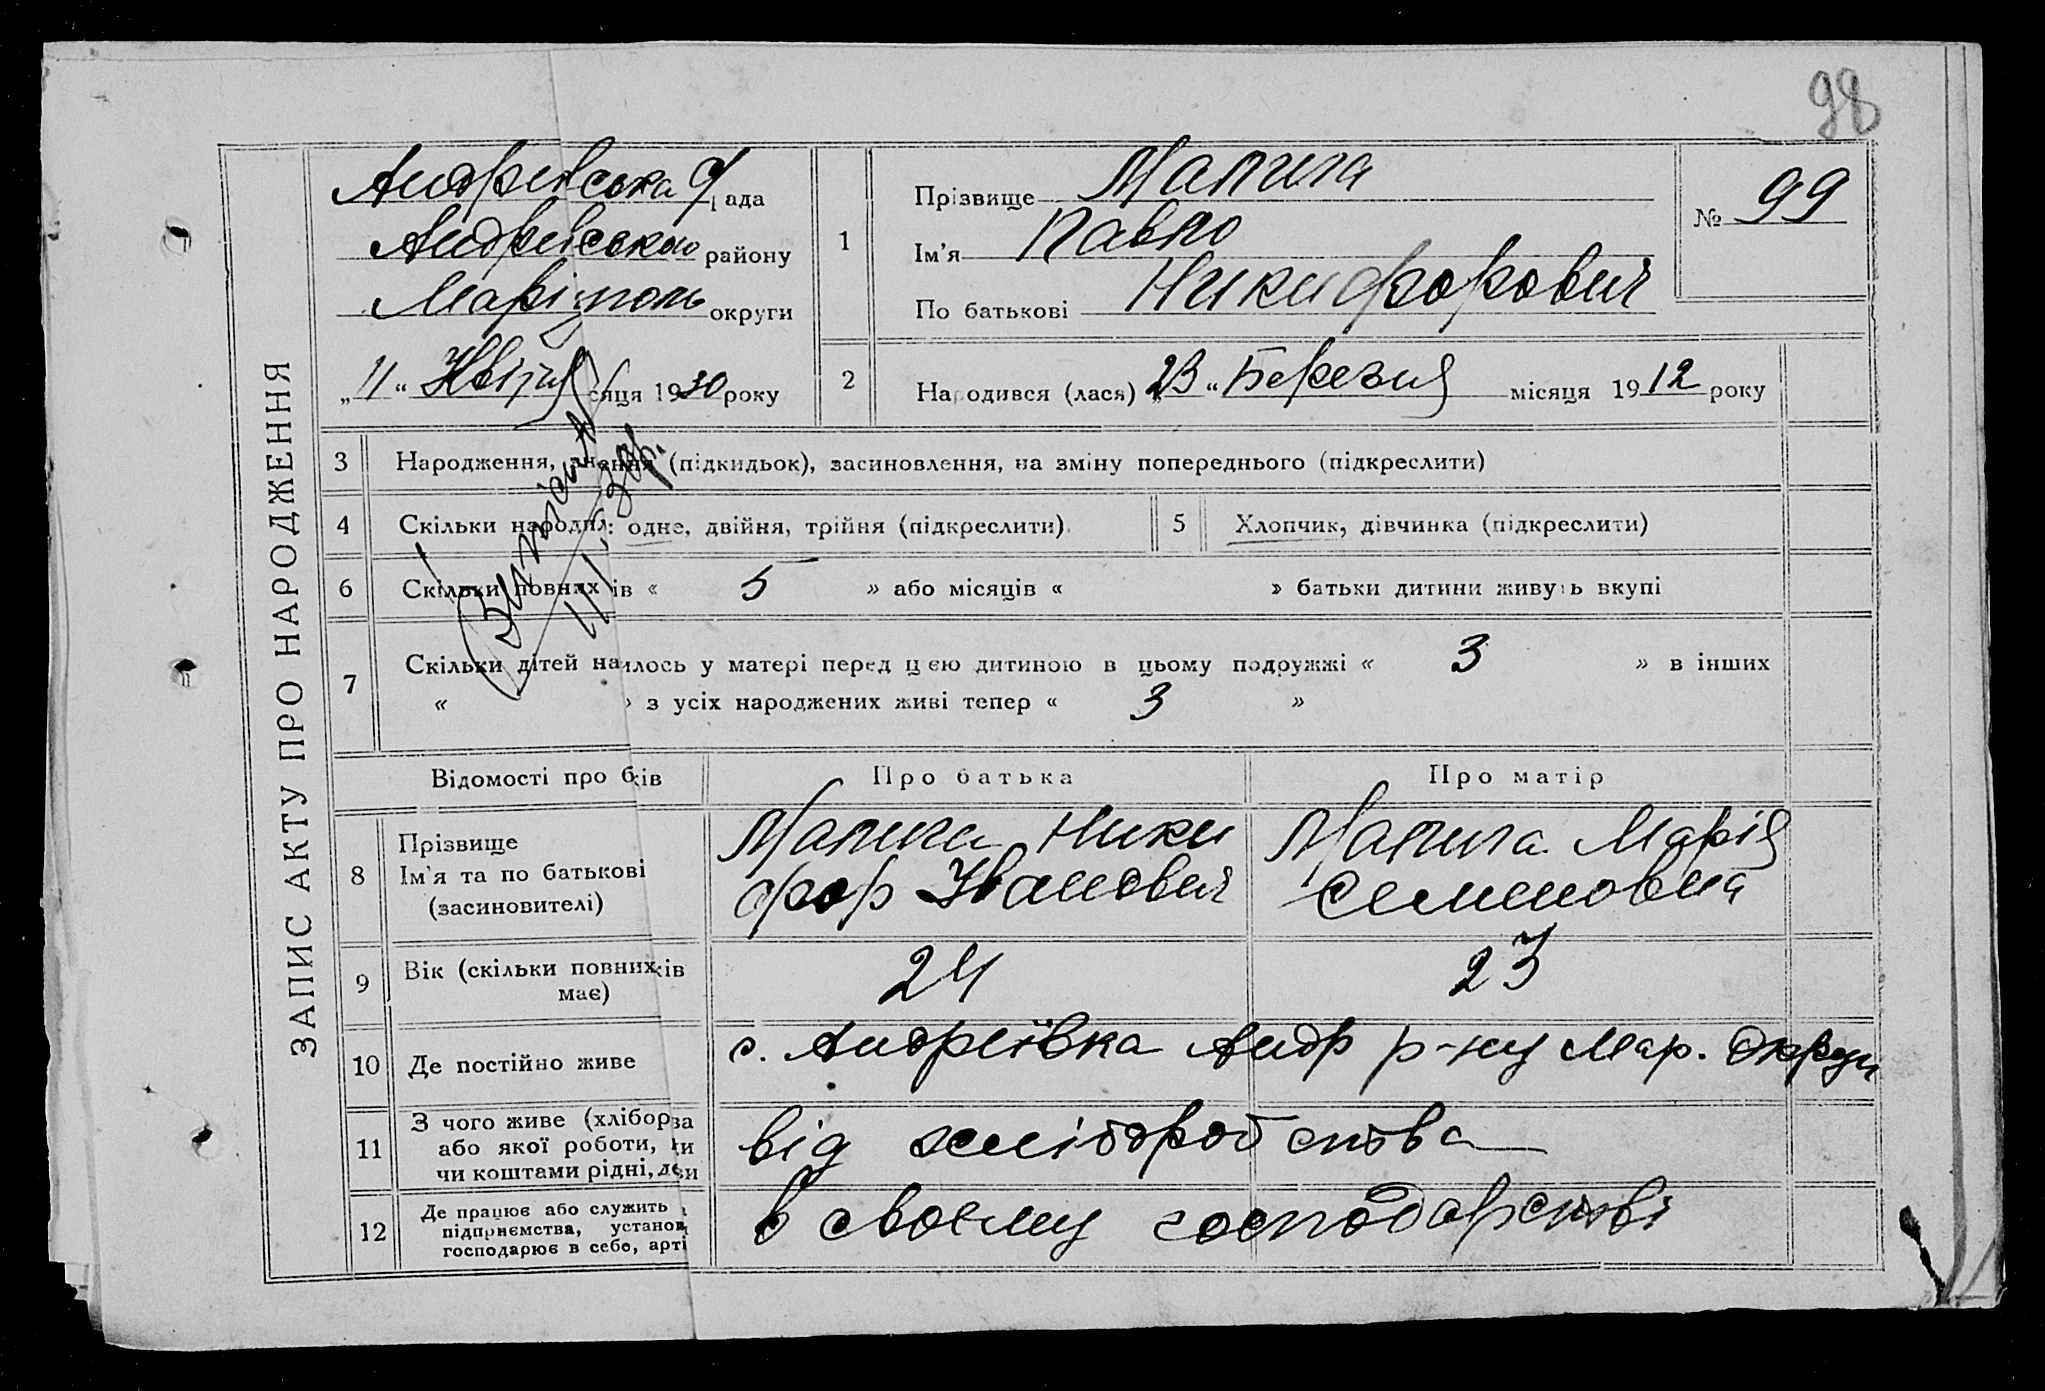 98
ЗАПИС АКТУ ПРО НАРОДЖЕННЯ
Андріївська Рада
Андріївського району
Маріуполь округи
„11“ Квітня сяця 1930 року
1
Прізвище Мапига
Ім'я Павло
По батькові Никифорович
№ 99
2
Народився (лася) „23“ Березня місяця 1912 року
3 Народження, знення (підкидьок), засиновлення, на зміну попереднього (підкреслити)
4 Скільки народил: одне, двійня, трійня (підкреслити)
5 Хлопчик, дівчинка (підкреслити)
6 Скільки повних ів « 5 » або місяців « » батьки дитини живуть вкупі
7 Скільки дітей наилось у матері перед цею дитиною в цьому подружжі « 3 » в інших
« » з усіх народжених живі тепер « 3 »
Відомості про бків
Про батька
Про матір
8 Прізвище
Ім'я та по батькові
(засиновителі)
Мапига Ники
фор Іванович
Мапига Марія
Семеновна
9 Вік (скільки повних ків
має)
24
23
10 Де постійно живе
с. Андріївка Андр р-ну Мар. Округи
11 З чого живе (хліборва
або якої роботи, ти
чи коштами рідні, деви
від хліборобства
12 Де працює або служить
підприємства, установ
господарює в себе, арті
в своєму господарстві